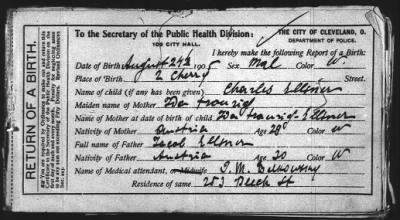 To the Secretary of the Public Health Division:
103 CITY HALL.
THE CITY OF CLEVELAND, O.
DEPARTMENT OF POLICE.
I hereby make the following Report of a Birth.
Date of Birth August 24th 1905 Sex Mal Color W.
Place of Birth 2 Cherry Street.
Name of child (if any has been given) Charles Ellner
Maiden name of Mother Ida
Name of Mother at date of birth of child Ida Ellner
Nativity of Mother Austria Age 28 Color W
Full name of Father Jacob Ellner
Nativity of Father Austria Age 30 Color W
Name of Medical attendant, or Midwife J. M.
Residence of same. 283 Beech St
RETURN OF A BIRTH.